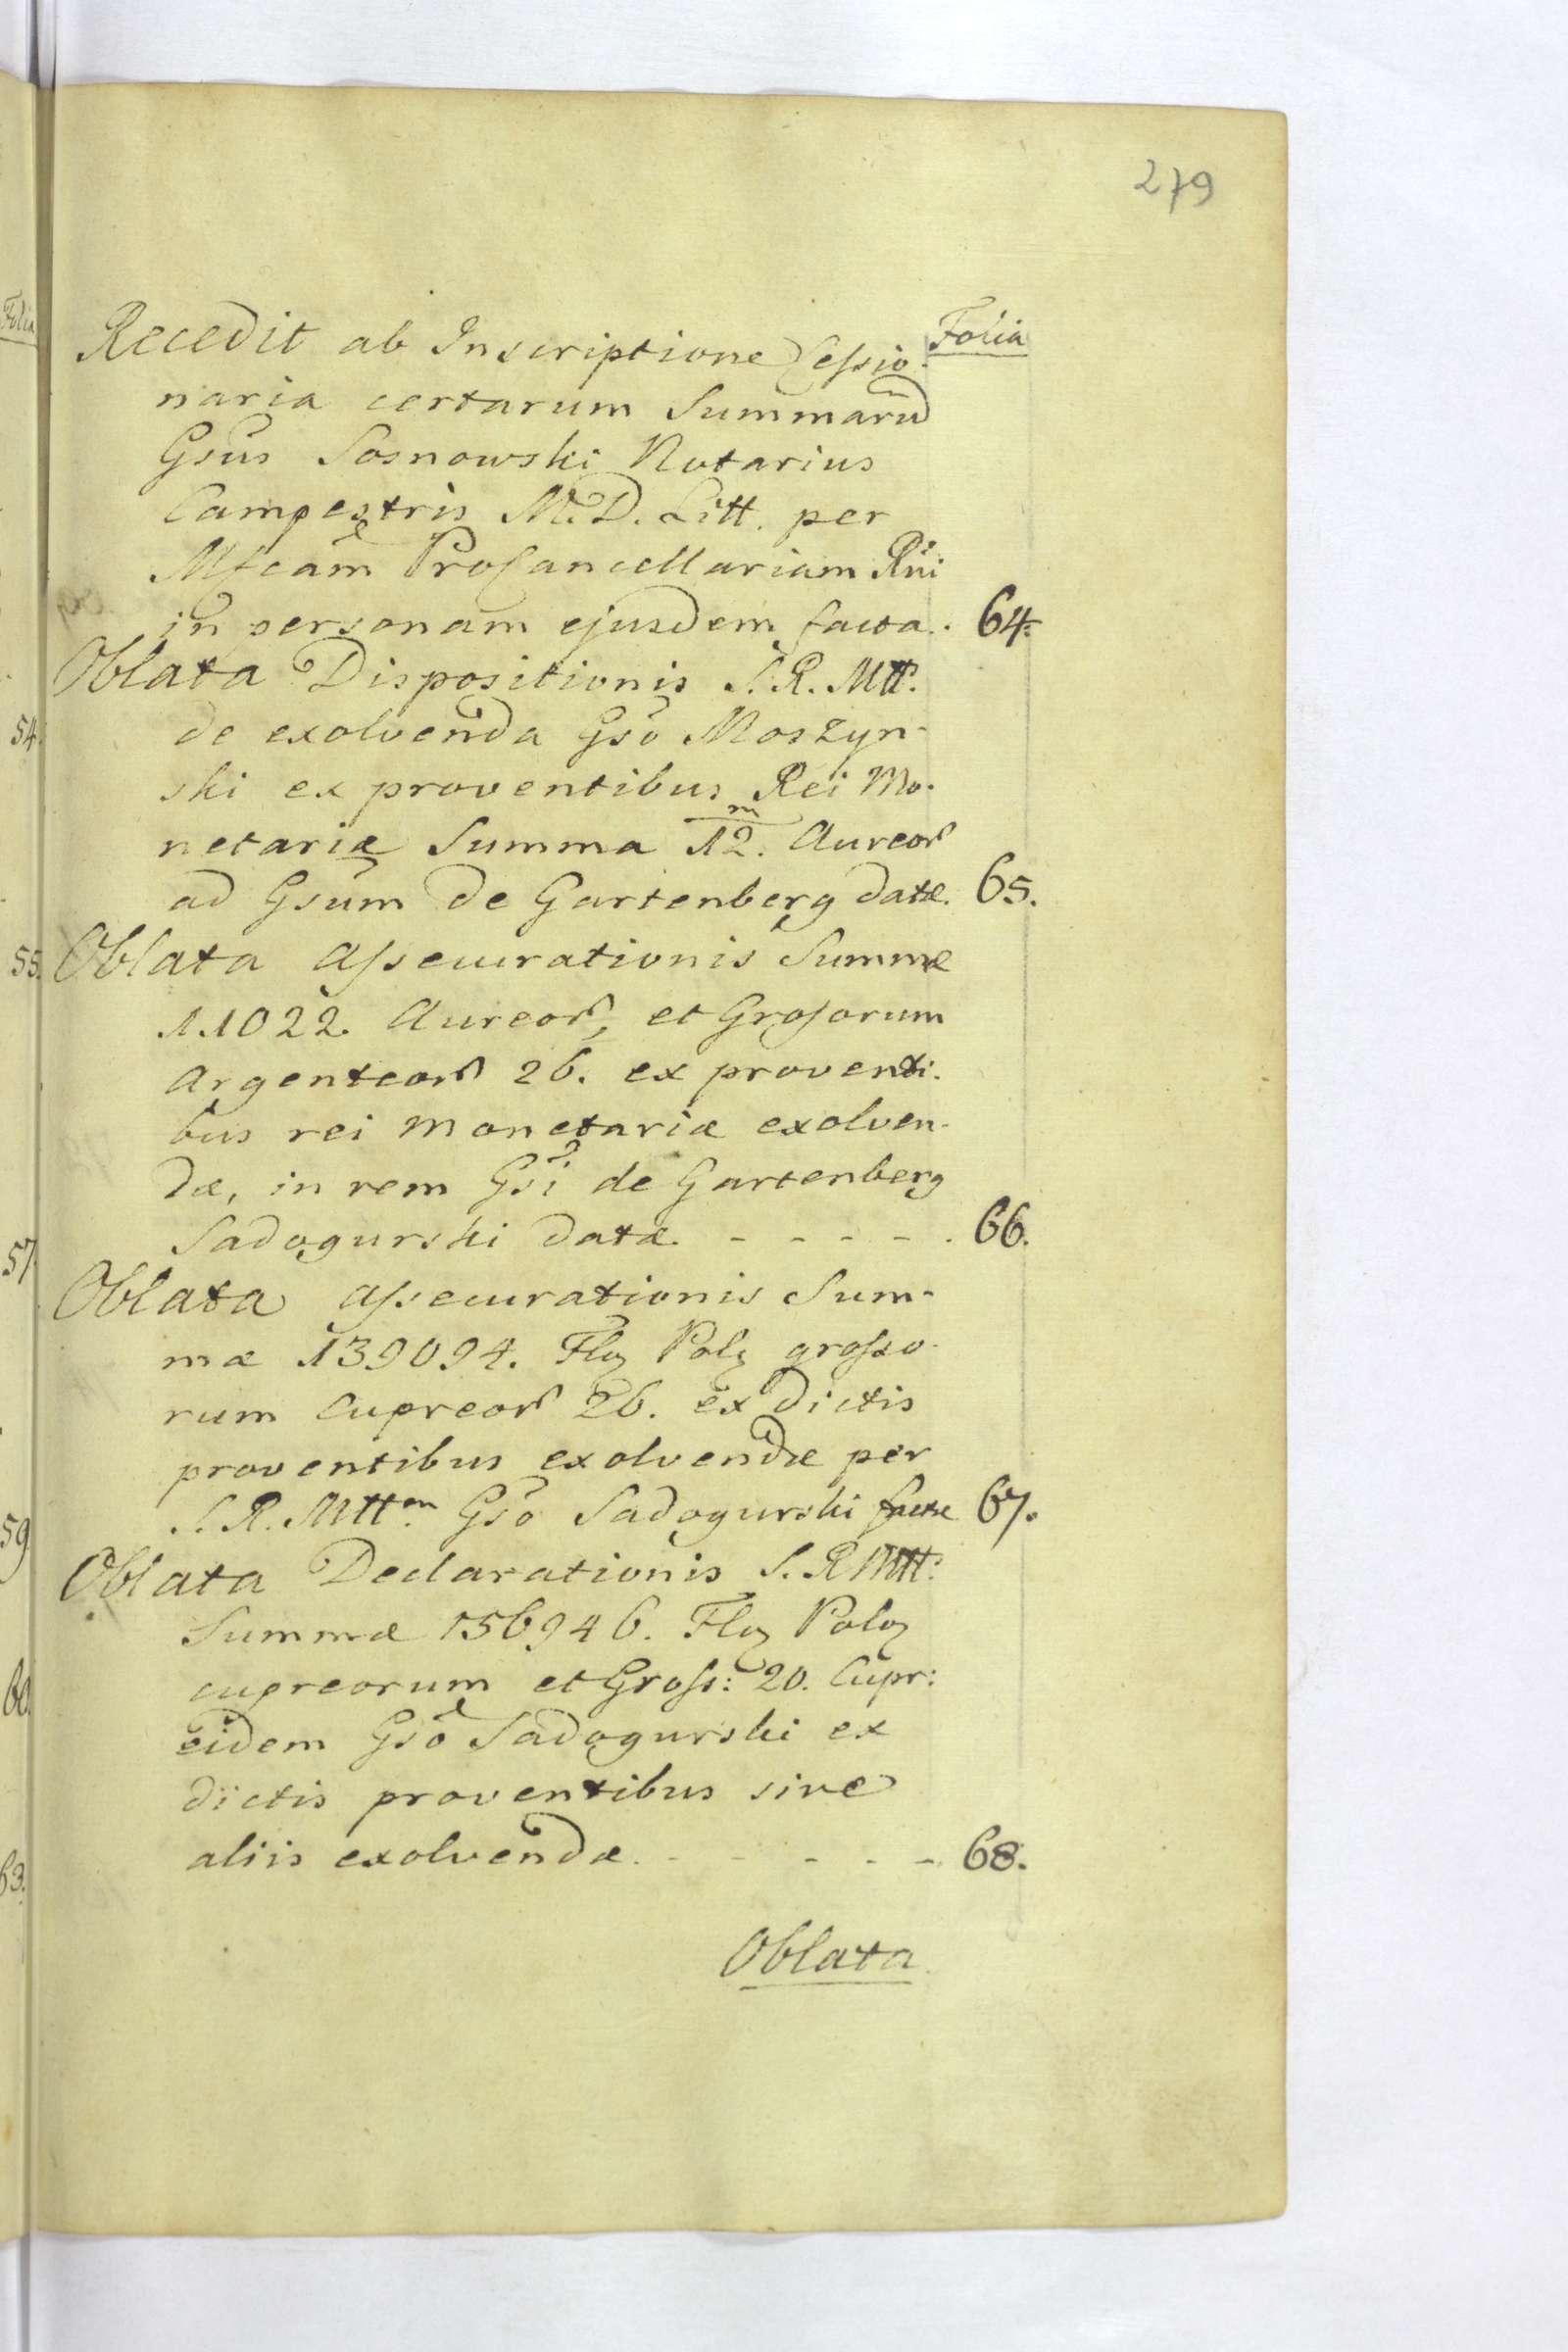 279
Folia
Recedit ab Inscriptione Cessio-
naria certarum Summarũ
Gsus Sosnowski Notarius
Campestris M.D. Litt. per
Mfcam ProCancellariam Rni
in personam ejusdem facta. 64.
Oblata Dispositionis S. R. Mtt.
de exolvenda Gso Moszyn-
ski ex proventibus Rei Mo-
netariæ Summa 12.m Aureor
ad Gsum de Gartenberg datæ. 65.
Oblata Assecurationis Summæ
11022. Aureor, et Grossorum
Argenteor 26. ex proventi-
bus rei monetariæ exolven-
dæ, in rem Gsi de Gartenberg
Sadogurski datæ. - - - - - 66.
Oblata Assecurationis Sum-
mæ 139094. Flo Pol grosso-
rum Cupreor 26. ex dictis
proventibus exolvendæ per
S. R. Mttem Gso Sadogurski factæ 67.
Oblata Declarationis S. R Mtt.
Summæ 156946. Flo Polo
cupreorum et Gross: 20. Cupr:
eidem Gso Sadogurski ex
dictis proventibus sive
aliis exolvendæ. - - - - - 68.
Oblata
Folia
54.
55.
57.
59
60.
63.